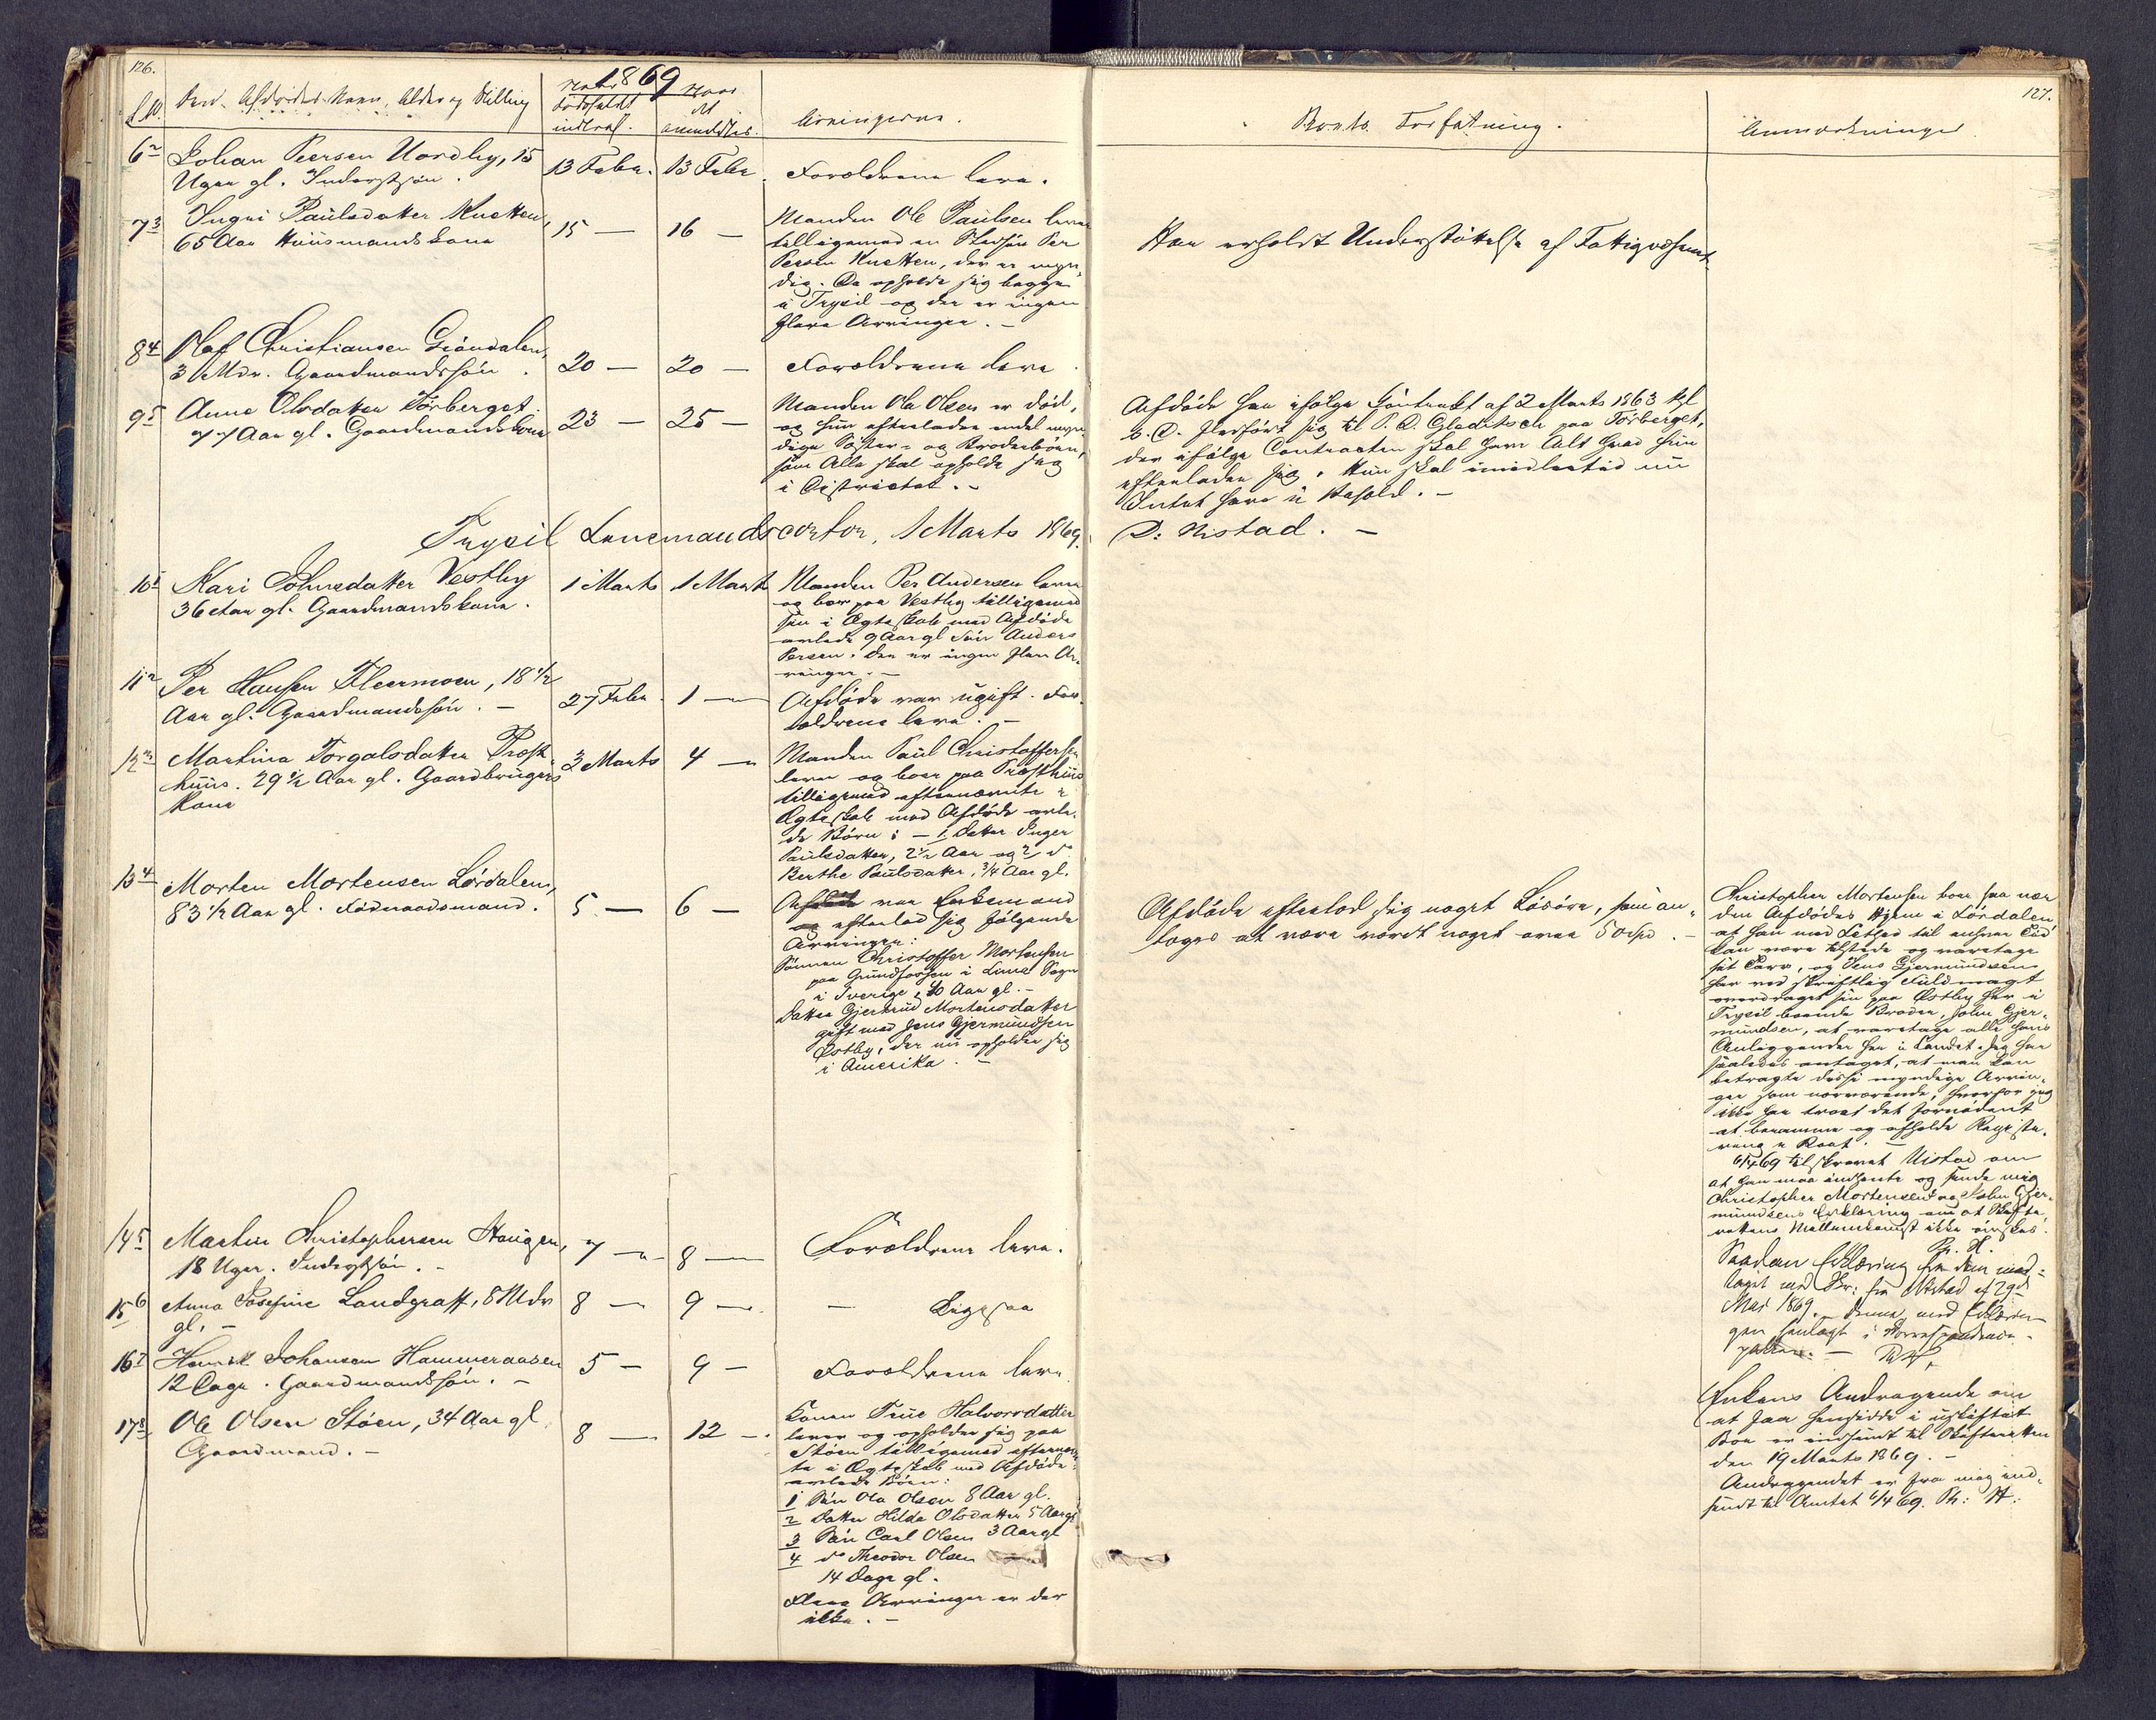 126.
1869
Den Afdødes Navn, Alder og Stilling
Naar
dødsfaldet
indtraf.
Naar
det
anmeldtes.
Arvingerne.
6 2 Johan Peersen Nordby, 15
Uger gl. Inderstsøn.
13 Febr. 13 Febr.
Forældrene leve.
7 3 Ingri Paulsdatter Knetten,
65 Aar Huusmandskone
15 — 16 —
Manden Ole Paulsen lever
tilligemed en Stedsøn Per
Persen Knetten, der er myn-
dig. De opholde sig begge
i Trysil og der er ingen
flere Arvinger. —
8 4 Olaf Christiansen Grøndalen,
3 Mdr. Gaardmandssøn.
20 — 20 —
Forældrene leve
9 5 Anne Olsdatter Tørberget
77 Aar gl. Gaardmandskone
23 — 25 —
Manden Ole Olsen er død,
og hun efterlader endel myn-
dige Søster- og Broderbørn,
som Alle skal opholde sig
i Districtet. —
Trysil Lensmandscontor, 1 Marts 1869.
10 1 Kari Johnsdatter Vestby
36 Aar gl. Gaardmandskone.
1 Marts 1 Marts
Manden Per Andersen lever
og bor paa Vestby tilligemed
sin i Ægteskab med Afdøde
avlede 9 Aar gl Søn Anders
Persen. Der er ingen flere Ar-
vinger. —
11 2 Per Hansen Fleermoen, 18 1/2
Aar gl. Gaardmandssøn. —
27 Febr. 1 —
Afdøde var ugift. For-
ældrene leve. —
12 3 Martina Torgalsdatter Præst-
huus. 29 1/2 Aar gl. Gaardbrugers
Kone
3 Marts 4 —
Manden Paul Christoffersen
lever og boer paa Præsthuus
tilligemed efternævnte i
Ægteskab med Afdøde avle-
de Børn: — 1 Datter Inger
Paulsdatter, 2 1/2 Aar og 2 do
Berthe Paulsdatter, 3/4 Aar gl.
13 4 Morten Mortensen Lørdalen,
83 1/2 Aar gl. Fødraadsmand.
5 — 6 —
Afdøde var Enkemand
og efterlod sig følgende
Arvinger:
Sønnen Christoffer Mortensen
paa Grundforsen i Lima Sogn
i Sverige, 40 Aar gl. —
Datter Gjertrud Mortensdatter
gift med Jens Gjermundsen
Østby, der nu opholder sig
i Amerika. —
14 5 Martin Christophersen Haugen,
18 Uger. Inderstsøn. —
7 — 8 —
Forældrene leve.
15 6 Anna Josefine Landgraff, 8 Mdr
gl. —
8 — 9 —
— Ligesaa
16 7 Henrik Johansen Hammeraasen
12 Dage. Gaardmandssøn. —
5 — 9 —
Forældrene leve.
17 8 Ole Olsen Støen, 34 Aar gl.
Gaardmand. —
8 — 12 —
Konen Trine Halvorsdatter
lever og opholder sig paa
Støen tilligemed efternævn-
te i Ægteskab med Afdøde
avlede Børn:
1 Søn Ole Olsen 8 Aar gl.
2 Datter Hilda Olsdatter 5 Aar gl
3 Søn Carl Olsen 3 Aar gl
4 do Theodor Olsen
14 Dage gl.
Flere Arvinger er der
ikke. —
127.
Boets Forfatning.
Anmærkninger
Har erholdt Understøttelse af Fattigvæsenet
Afdøde har ifølge Contrakt af 2 Marts 1863
hedført sig til P. O. Gladbach paa Tørberget,
der ifølge Contracten skal have Alt hvad hun
efterlader sig. Hun skal imidlertid nu
Intet have i Behold. —
D: Nistad. —
Afdøde efterlod sig noget Løsøre, som an-
toges at være værdt noget over 5 Ordspd. —
Christopher Mortensen boer saa nær
den Afdødes Hjem i Lørdalen,
at han med Lethed til enhver Tid
kan være tilstede og varetage
sit Tarv, og Jens Gjermundsen
har ved skriftlig Fuldmagt
overdraget sin paa Østby her i
Trysil boende Broder, John Gjer-
mundsen, at varetage alle hans
Anliggender her i Landet. Jeg har
saaledes antaget, at man kan
betragte disse myndige Arvin-
ger som nærværende, hvorfor jeg
ikke har troet det fornødent
at beramme og afholde Registe-
ring i Boet. —
6/4 69 tilskrevet Nistad om
at han maa indhente og sende mig
Christopher Mortensens og John Gjer-
mundsens Erklæring om at Skifte-
rettens Mellemkomst ikke ønskes.
Ph. H.
Saadan Erklæring fra dem mod-
taget med Br. fra Nistad af 29d
Mai 1869. — Denne med Erklærin-
gen henlagt i Correspondance-
pakken. —
Enkens Andragende om
at faa hensidde i uskiftet
Bo er indsendt til Skifteretten
den 19 Marts 1869. —
Andragendet er fra mig ind-
sendt til Amtet 6/4 69. Ph: H: